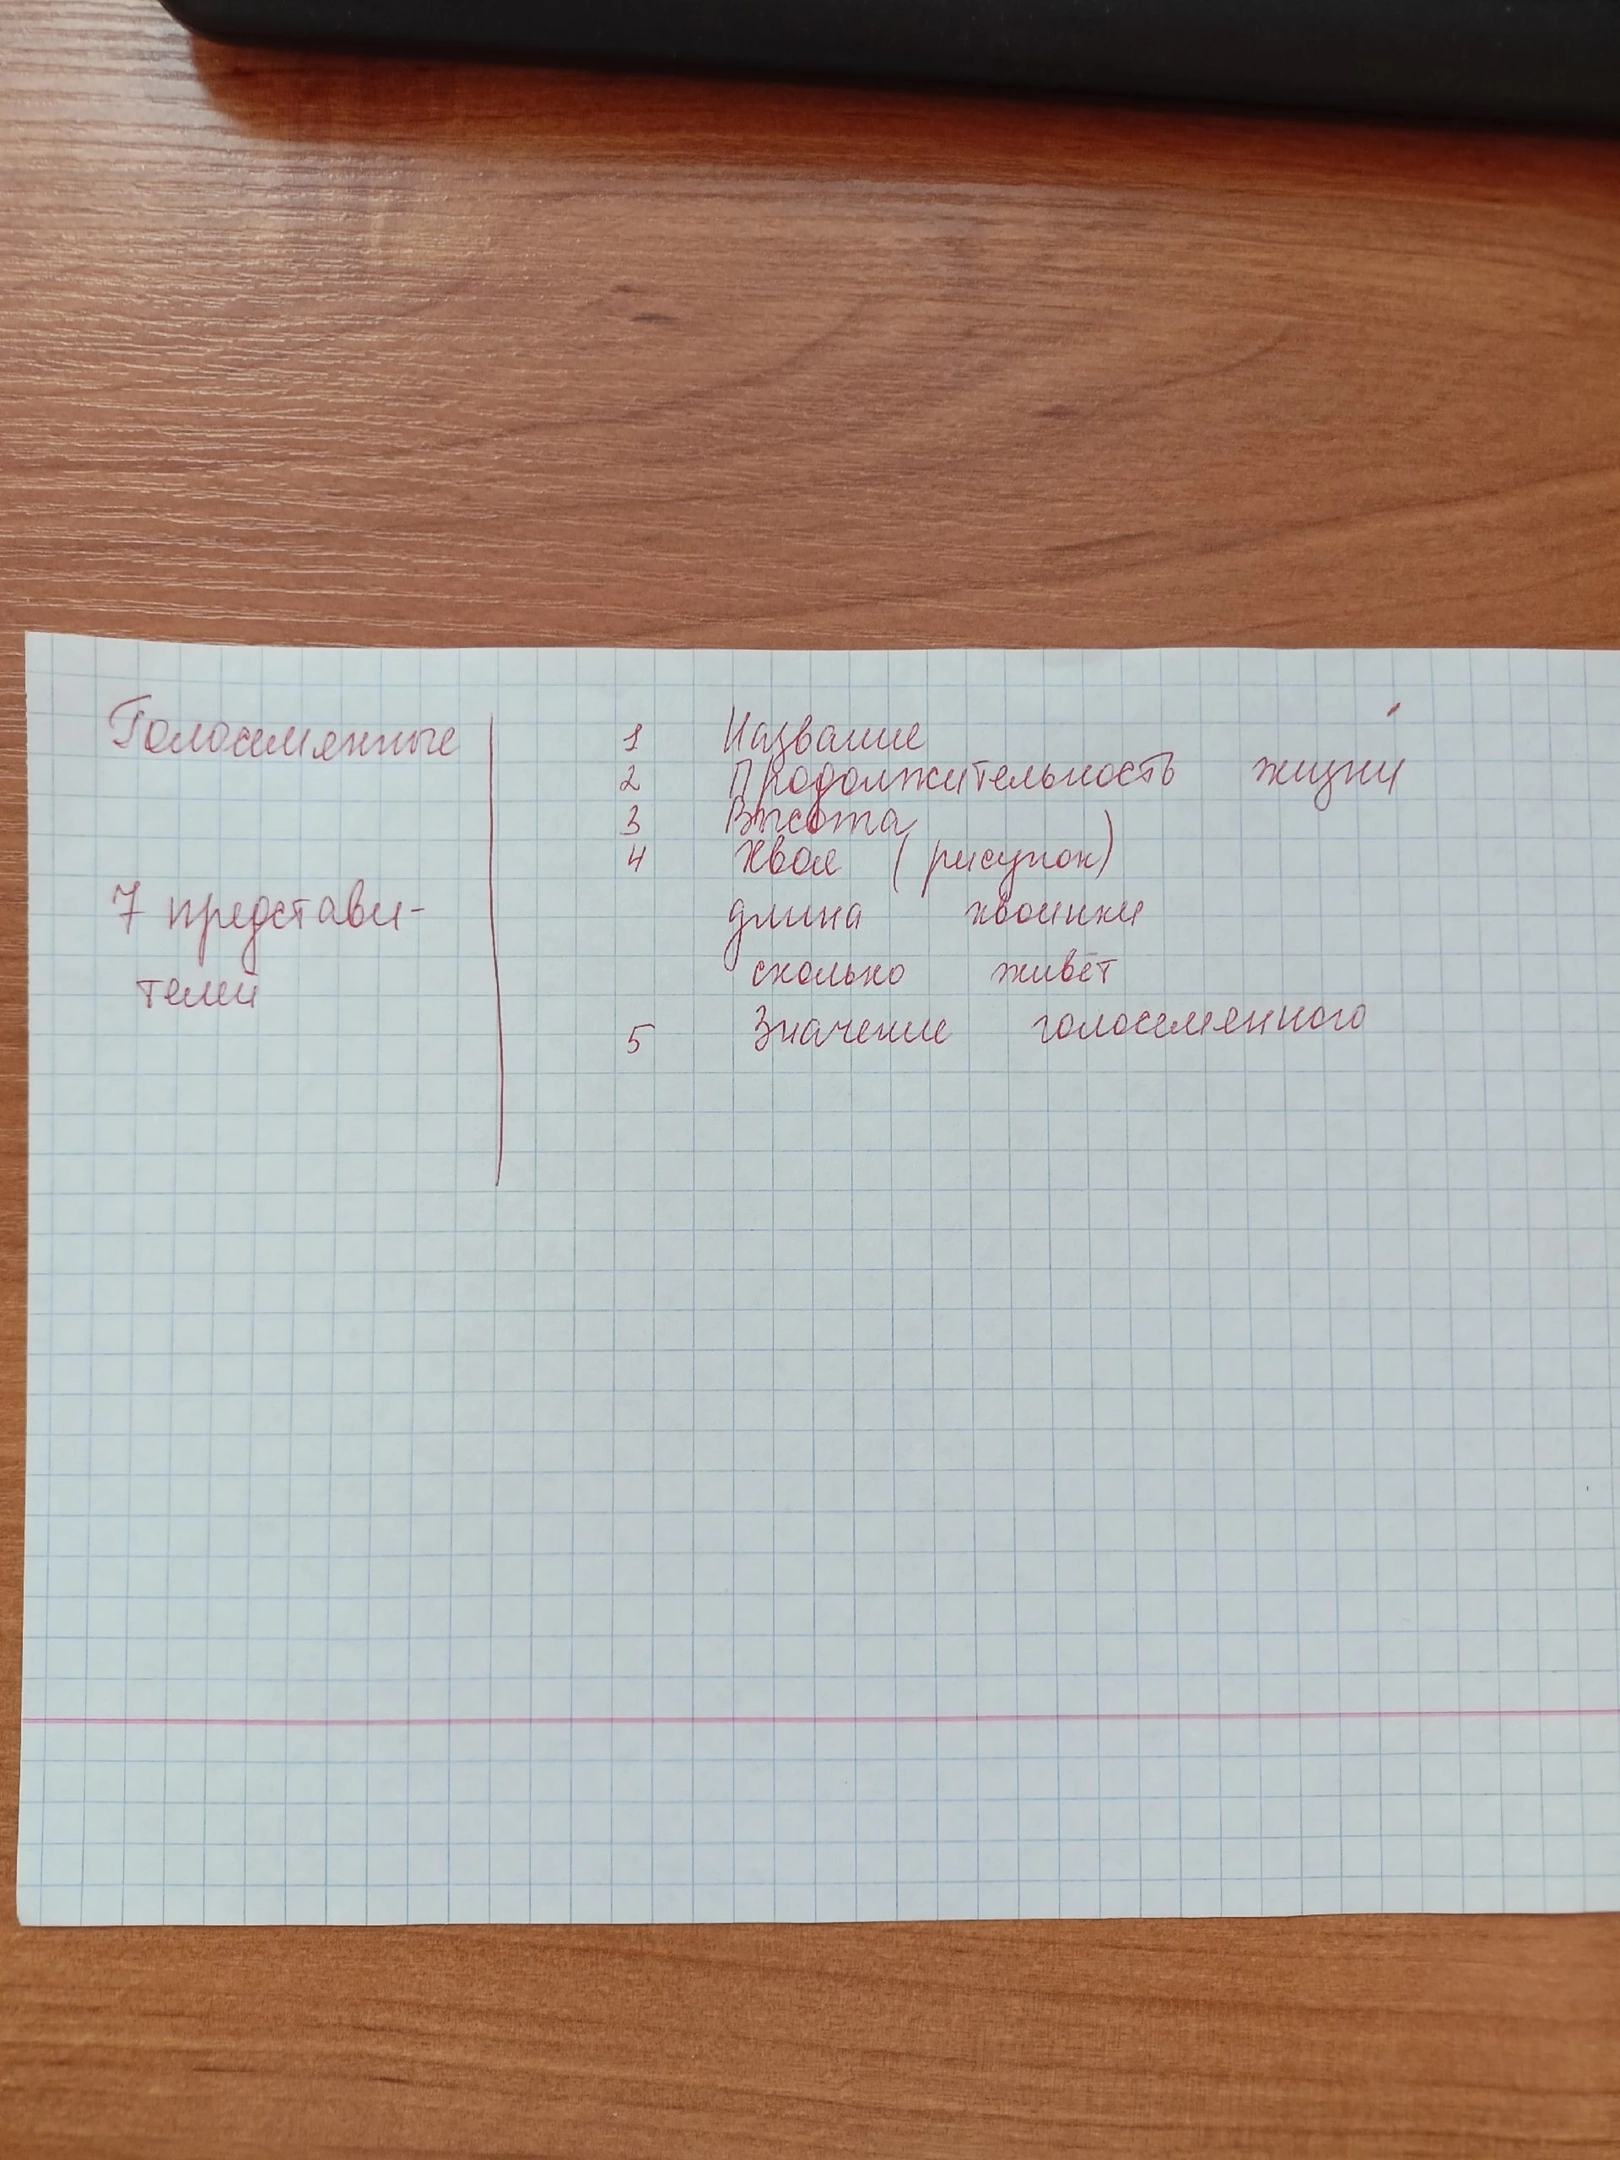 Голосеменные
7 представи-
телей
1 Название
2 Продолжительность жизни
3 Высота
4 Хвоя (рисунок)
длина хвоинки
сколько живёт
5 Значение голосеменного